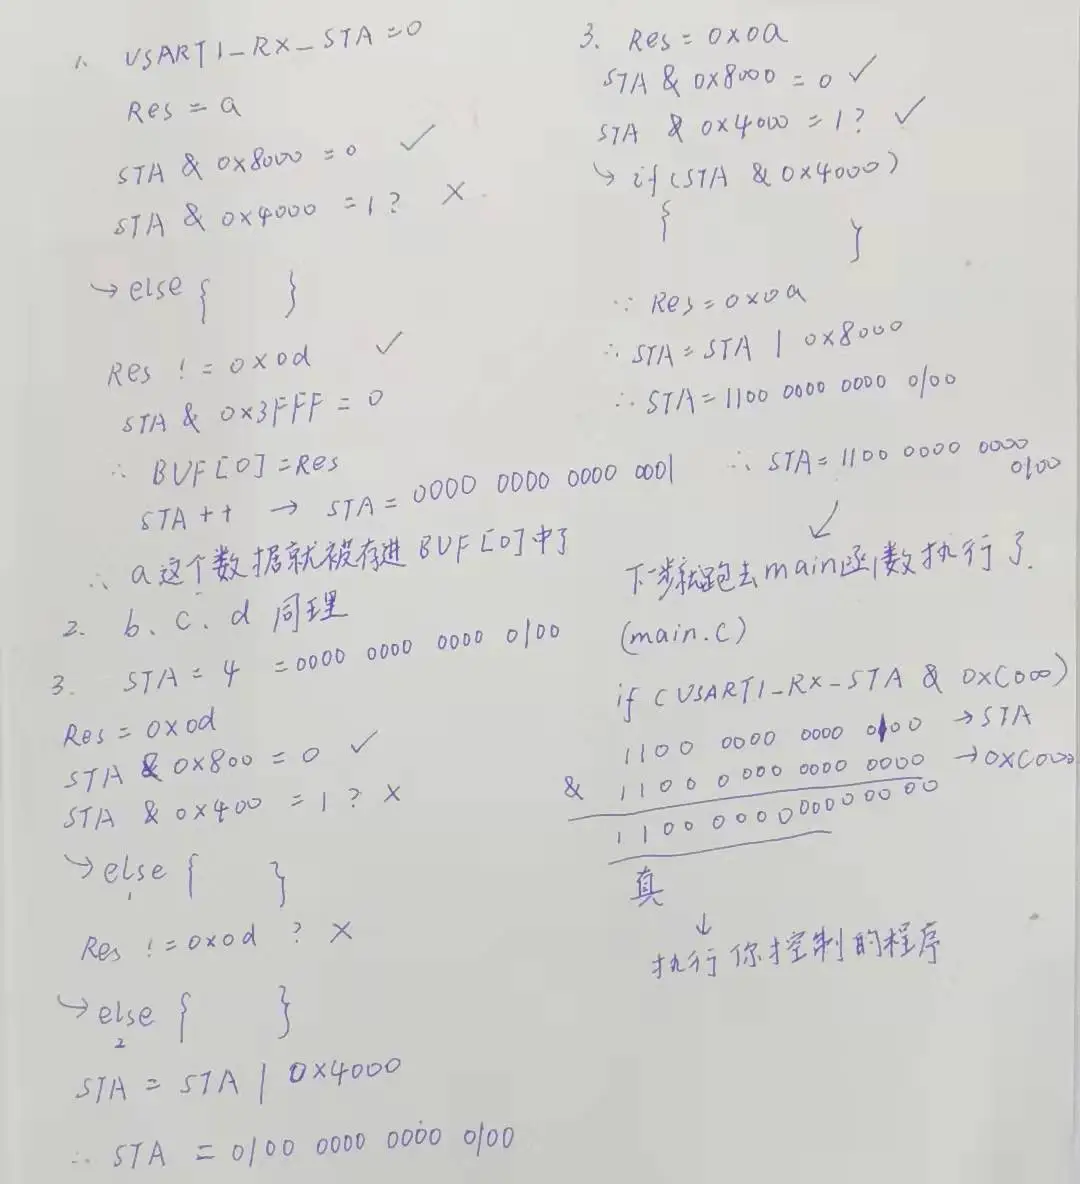 1. USART1_RX_STA=0
Res = a
STA & 0x8000 = 0 ✓
STA & 0x4000 = 1? ×
→ else { }
Res != 0x0d ✓
STA & 0x3FFF = 0
∴ BUF[0]=Res
STA++ → STA = 0000 0000 0000 0001
∴ a这个数据就被存进BUF[0]中了
2. b、c、d 同理
3. STA = 4 = 0000 0000 0000 0100
Res = 0x0d
STA & 0x800 = 0 ✓
STA & 0x400 = 1 ? ×
→ else { }
1
Res != 0x0d ? ×
→ else { }
2
STA = STA | 0x4000
∴ STA = 0100 0000 0000 0100
3. Res = 0x0a
STA & 0x8000 = 0 ✓
STA & 0x4000 = 1? ✓
↳ if(STA & 0x4000)
{
}
∵ Res = 0x0a
∴ STA = STA | 0x8000
∴ STA = 1100 0000 0000 0100
∴ STA = 1100 0000 0000
0100
↓
下一步就跑去main函数执行了.
(main.c)
if (USART1_RX_STA & 0xC000)
1100 0000 0000 0100 → STA
& 1100 0000 0000 0000 → 0xC000
1100 0000 0000 0000
真
↓
执行你控制的程序